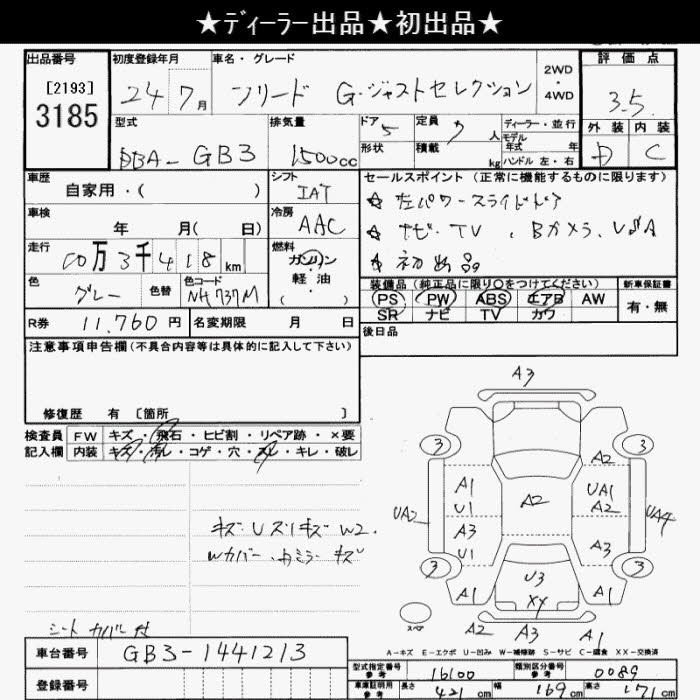 ★ディーラー出品★初出品★
出品番号 初度登録年月 車名・グレード 2WD・4WD 評価点
[2193]
3185
24 7月 フリード G・ジャストセレクション 3.5
型式 排気量 ドア 定員 人 ディーラー・並行 外装 内装
形状 積載 kg モデル年式 年 ハンドル 左・右
DBA-GB3 1500cc 5 7 D C
車歴 シフト セールスポイント（正常に機能するものに限ります）
自家用・( ) IAT
☆ 左パワースライドドア
車検 年 月( 日) 冷房 AAC
☆ ナビ・TV、Bカメラ、USA
走行 万3千418km 燃料 ガソリン・軽油・( )
☆ 初出品
色 グレー 色替 色コード NH737M
装備品（純正品に限り○をつけてください） 新車保証書
PS PW ABS エアB AW 有・無
SR ナビ TV カワ
R券 11,760円 名変期限 月 日
後日品
注意事項申告欄（不具合内容等は具体的に記入して下さい）
修復歴 有 〔箇所 〕
検査員 FW キズ・飛石・ヒビ割・リペア跡・×要
記入欄 内装 キズ・汚レ・コゲ・穴・スレ・キレ・破レ
A3
3 3
A2
A1 UA1
U1 A2 A2
UA2 UA4
A3 A3
U1
3 3
U3
A1 XX A1
スペア
A2 A3 A1
キズ・Uズリキズ W2
Wカバー、カミラーキズ
シートカバー付
A-キズ E-エクボ U-凹み W-補修跡 S-サビ C-腐食 XX-交換済
車台番号 GB3-1441213
型式指定番号 参考 16100 類別区分番号 参考 0089
登録番号
車庫証明用 参考 長さ 421cm 幅 169cm 高さ 171cm